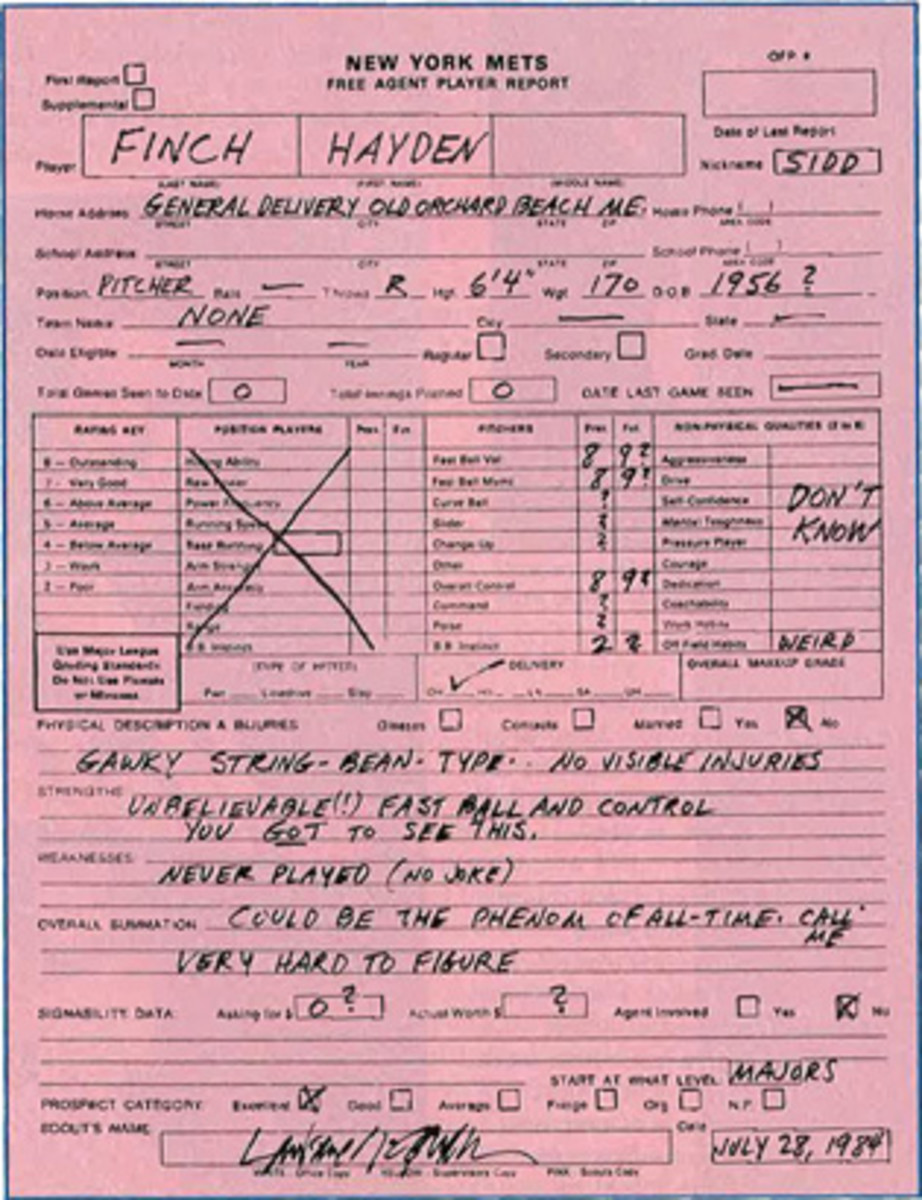 NEW YORK METS
FREE AGENT PLAYER REPORT
OFP #
First Report
Supplemental
Date of Last Report
Player FINCH HAYDEN
Nickname SIDD
(LAST NAME) (FIRST NAME) (MIDDLE NAME)
Home Address GENERAL DELIVERY OLD ORCHARD BEACH ME. Home Phone ( )
STREET CITY STATE ZIP AREA CODE
School Address School Phone ( )
STREET CITY STATE ZIP AREA CODE
Position PITCHER Bats — Throws R Hgt. 6'4" Wgt. 170 D.O.B. 1956 ?
Team Name NONE City — State —
Date Eligible — — Regular Secondary Grad. Date
MONTH YEAR
Total Games Seen to Date 0 Total Innings Pitched 0 DATE LAST GAME SEEN —
RATING KEY POSITION PLAYERS Pres. Fut. PITCHERS Pres. Fut. NON-PHYSICAL QUALITIES
8 — Outstanding Hitting Ability Fast Ball Vel. 8 9? Aggressiveness
7 - Very Good Raw Power Fast Ball Mvmt. 8 9? Drive
6 — Above Average Power Frequency Curve Ball ? Self-Confidence DON'T
5 — Average Running Speed Slider ? Mental Toughness KNOW
4 — Below Average Base Running Change-Up ? Pressure Player
3 — Weak Arm Strength Other Courage
2 — Poor Arm Accuracy Overall Control 8 9? Dedication
Fielding Command ? Coachability
Range Poise ? Work Habits
B.B. Instinct B.B. Instinct 2 2 Off Field Habits WEIRD
Use Major League
Grading Standards
Do Not Use Pluses
or Minuses
(TYPE OF HITTER) DELIVERY OVERALL MAKEUP GRADE
PHYSICAL DESCRIPTION & INJURIES Glasses Contacts Married Yes No
GAWKY STRING-BEAN-TYPE.. NO VISIBLE INJURIES
STRENGTHS UNBELIEVABLE(!) FAST BALL AND CONTROL
YOU GOT TO SEE THIS.
WEAKNESSES
NEVER PLAYED (NO JOKE)
OVERALL SUMMATION COULD BE THE PHENOM OF ALL-TIME. CALL
ME
VERY HARD TO FIGURE
SIGNABILITY DATA: Asking for $ 0 ? Actual Worth $ ? Agent Involved Yes No
START AT WHAT LEVEL: MAJORS
PROSPECT CATEGORY: Excellent Good Average Fringe Org N.P.
SCOUT'S NAME Date JULY 28, 1984
WHITE - Office Copy YELLOW - Supervisors Copy PINK - Scouts Copy